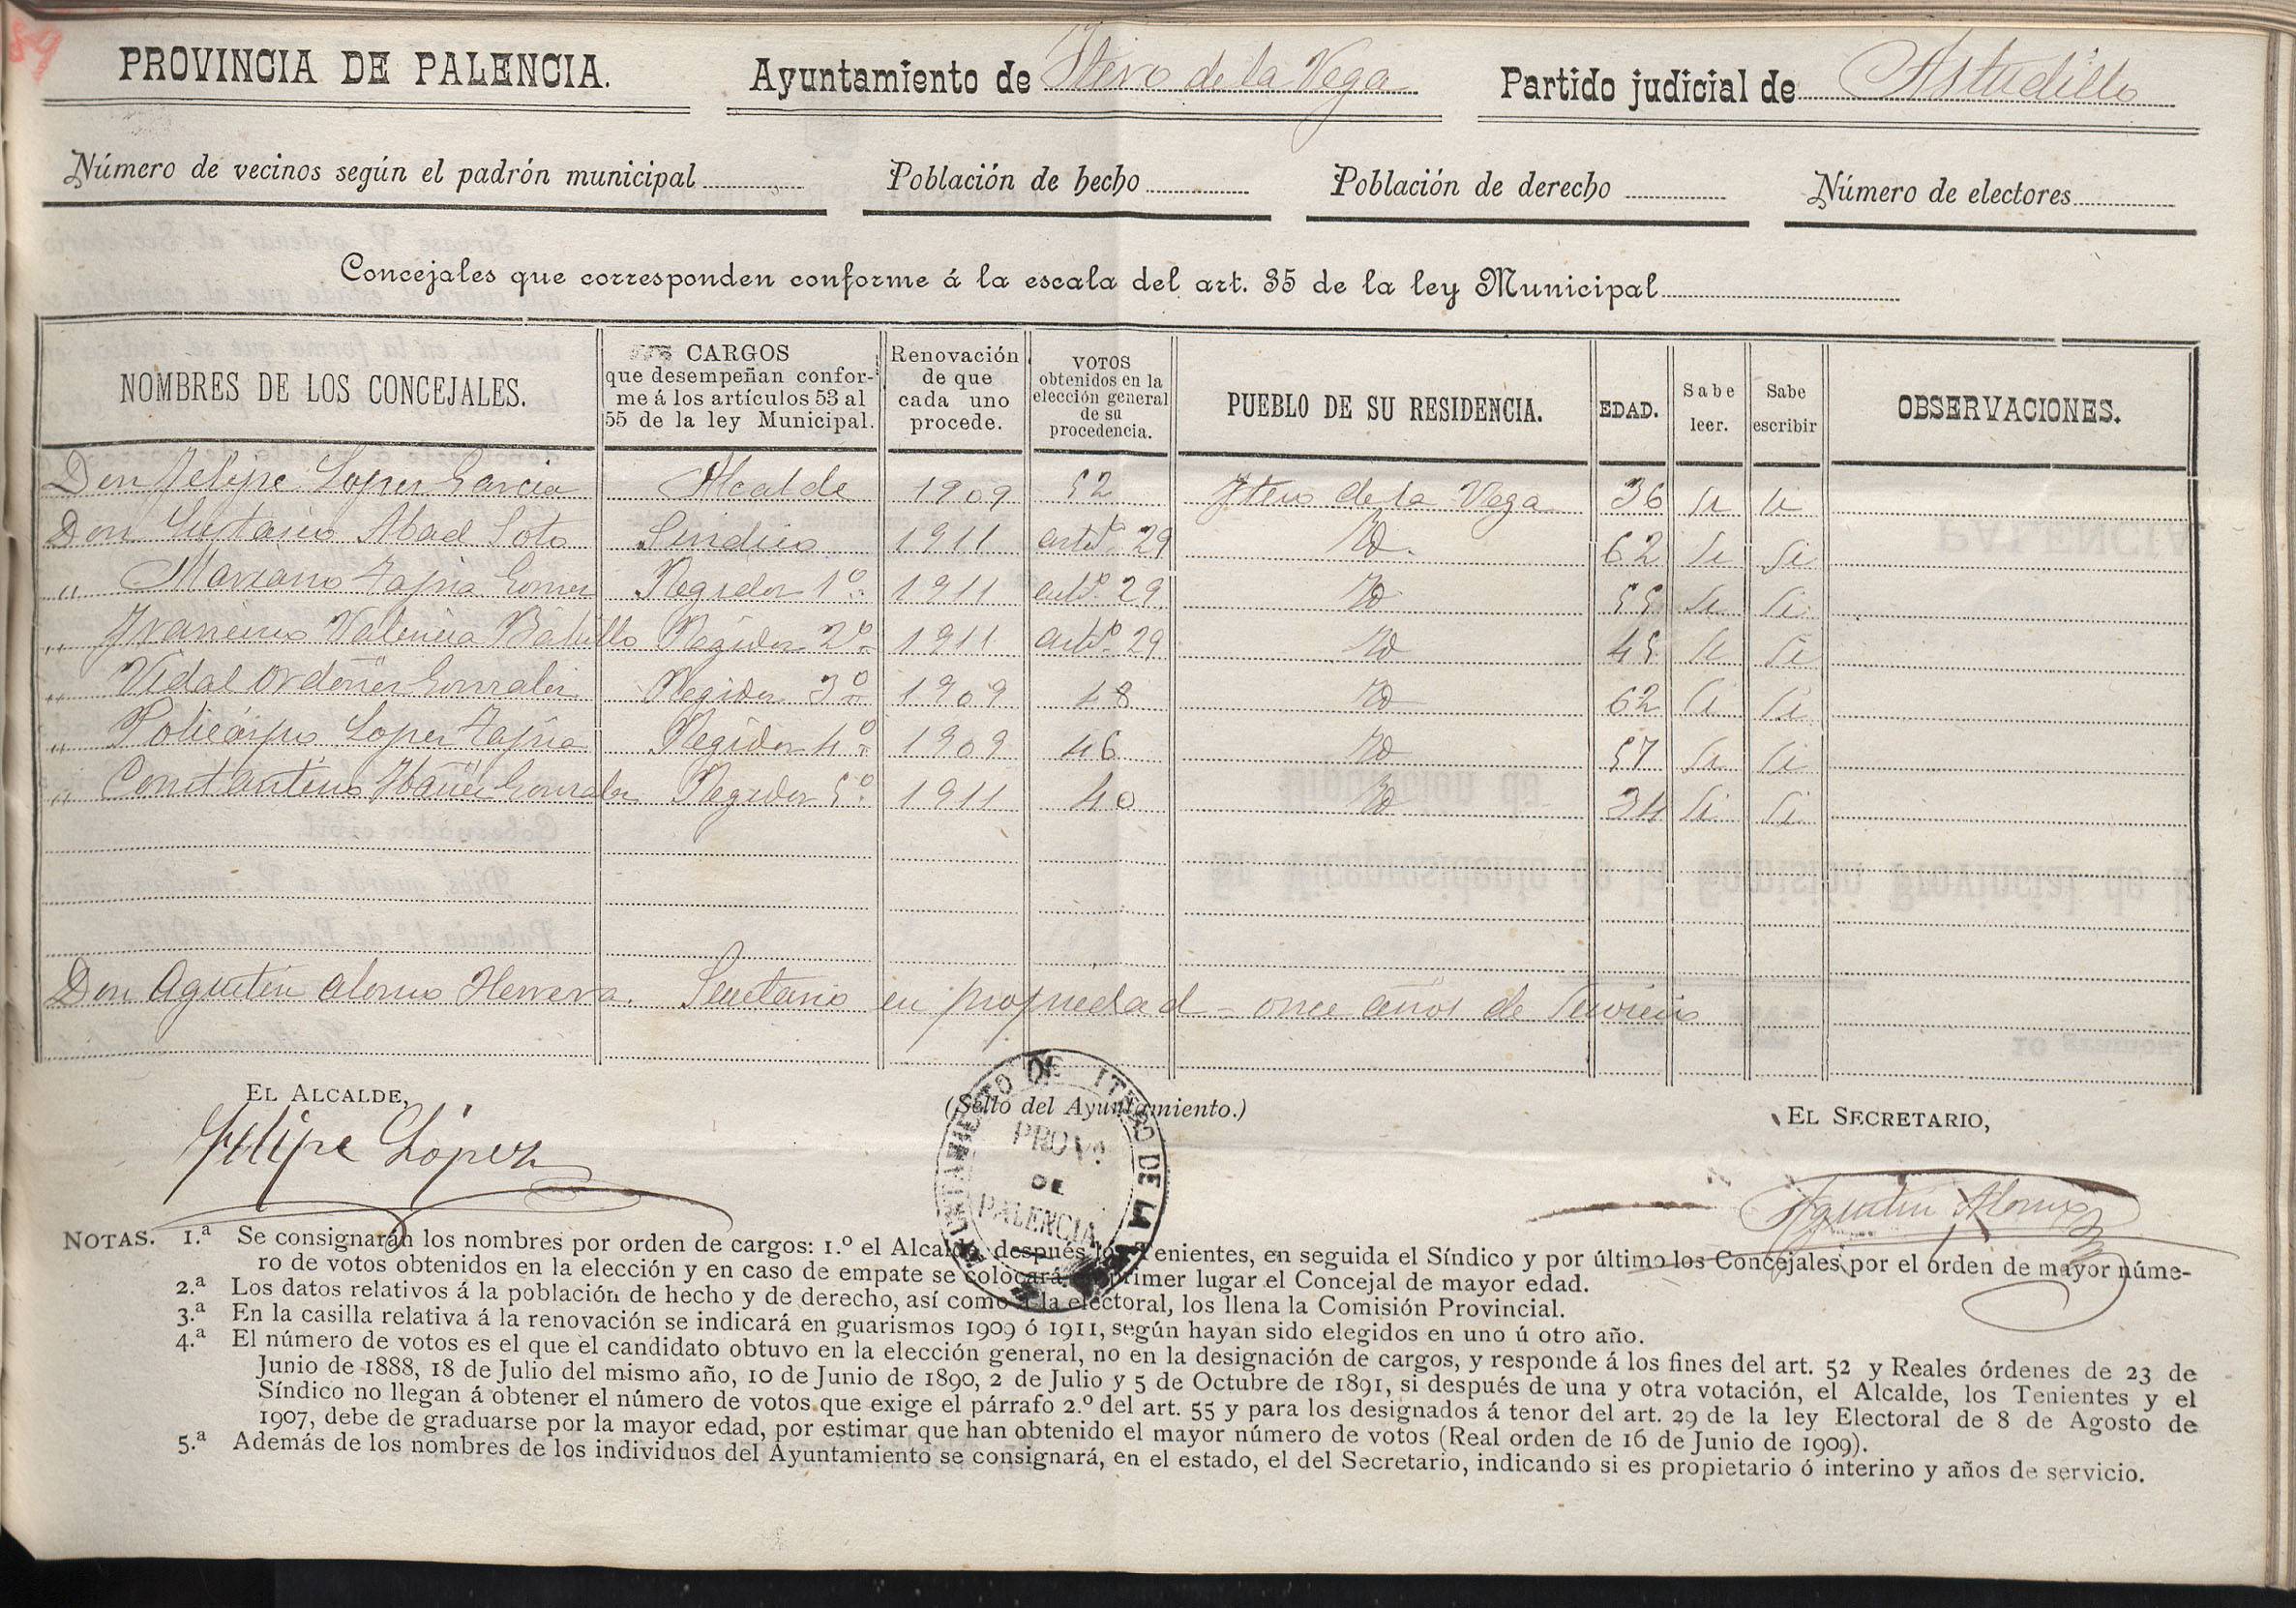 89
PROVINCIA DE PALENCIA. Ayuntamiento de Itero de la Vega Partido judicial de Astudillo
Número de vecinos según el padrón municipal Población de hecho Población de derecho Número de electores
Concejales que corresponden conforme á la escala del art. 35 de la ley Municipal
NOMBRES DE LOS CONCEJALES. CARGOS que desempeñan conforme á los artículos 53 al 55 de la ley Municipal. Renovación de que cada uno procede. VOTOS obtenidos en la elección general de su procedencia. PUEBLO DE SU RESIDENCIA. EDAD. Sabe leer. Sabe escribir OBSERVACIONES.
Don Felipe Lopez Garcia Alcalde 1909 52 Ytero de la Vega 36 Si Si
Don Eustasio Abad Soto Sindico 1911 artº. 29 Id. 62 Si Si
,, Mariano Tapia Gomez Regidor 1º. 1911 artº. 29 Id 55 Si Si
,, Francisco Valencia Babillo Regidor 2º. 1911 artº. 29 Id 45 Si Si
,, Vidal Ordoñez Gonzalez Regidor 3º 1909 48 Id 62 Si Si
,, Policarpo Lopez Tapia Regidor 4º. 1909 46 Id 57 Si Si
,, Constantino Ibañez Gonzalez Regidor 5º. 1911 40 Id 34 Si Si
Don Agustin Alonso Herrera. Secretario en propiedad - once años de Servicio
EL ALCALDE, (Sello del Ayuntamiento.) EL SECRETARIO,
Felipe López
AYUNTAMIENTO DE ITERO DE LA
PROVª
DE
PALENCIA
Agustin Alonso
NOTAS. 1.ª Se consignarán los nombres por orden de cargos: 1.º el Alcalde, después los Tenientes, en seguida el Síndico y por último los Concejales por el orden de mayor núme-
ro de votos obtenidos en la elección y en caso de empate se colocará en primer lugar el Concejal de mayor edad.
2.ª Los datos relativos á la población de hecho y de derecho, así como á la electoral, los llena la Comisión Provincial.
3.ª En la casilla relativa á la renovación se indicará en guarismos 1909 ó 1911, según hayan sido elegidos en uno ú otro año.
4.ª El número de votos es el que el candidato obtuvo en la elección general, no en la designación de cargos, y responde á los fines del art. 52 y Reales órdenes de 23 de
Junio de 1888, 18 de Julio del mismo año, 10 de Junio de 1890, 2 de Julio y 5 de Octubre de 1891, si después de una y otra votación, el Alcalde, los Tenientes y el
Síndico no llegan á obtener el número de votos que exige el párrafo 2.º del art. 55 y para los designados á tenor del art. 29 de la ley Electoral de 8 de Agosto de
1907, debe de graduarse por la mayor edad, por estimar que han obtenido el mayor número de votos (Real orden de 16 de Junio de 1909).
5.ª Además de los nombres de los individuos del Ayuntamiento se consignará, en el estado, el del Secretario, indicando si es propietario ó interino y años de servicio.